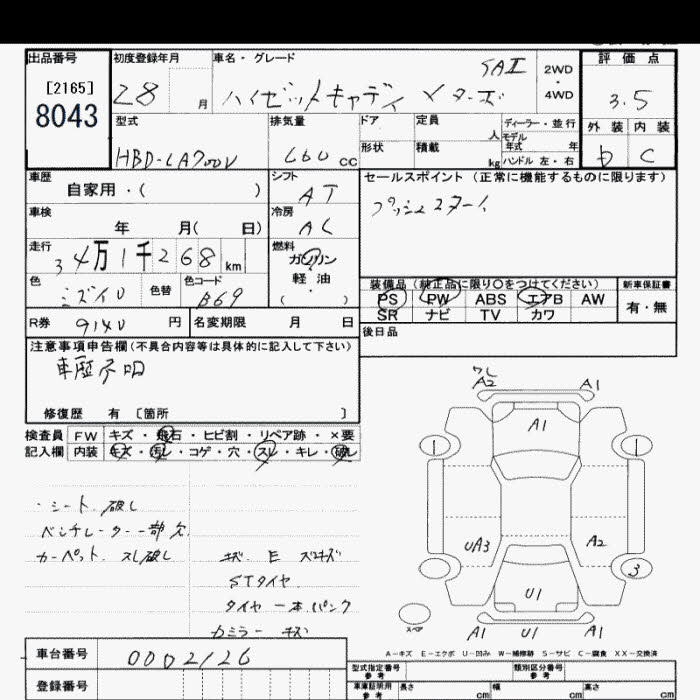 出品番号
[2165]
8043
初度登録年月 28 月
車名・グレード SAⅡ
ハイゼットキャディー
2WD
・
4WD
評価点
3.5
外装 内装
b C
型式 HBD-LA700V
排気量 660 cc
ドア
定員 人
形状
積載 kg
ディーラー・並行
モデル
年式 年
ハンドル 左・右
車歴 自家用・( )
シフト AT
セールスポイント (正常に機能するものに限ります)
車検 年 月( 日)
冷房 AC
走行 34万1千268km
燃料
ガソリン
軽油
( ・ )
色 ミズイロ
色替
色コード B69
装備品 (純正品に限り○をつけてください)
PS PW ABS エアB AW
SR ナビ TV カワ
新車保証書
有・無
R券 9140 円
名変期限 月 日
後日品
注意事項申告欄(不具合内容等は具体的に記入して下さい)
車歴不明
修復歴 有 〔箇所 〕
検査員 FW キズ・飛石・ヒビ割・リペア跡・×要
記入欄 内装 キズ・汚レ・コゲ・穴・スレ・キレ・破レ
・シート 破レ
ベンチレーター一部欠
カーペット スレ破レ
STタイヤ
タイヤ一本パンク
カミラー キズ
ワレ
A2 A1
A1
1 1
UA3 A2
3
U1
スペア
A1 U1 A1
A-キズ E-エクボ U-凹み W-補修跡 S-サビ C-腐食 XX-交換済
車台番号 0002126
登録番号
型式指定番号
参考
類別区分番号
参考
車庫証明用
参考
長さ cm
幅 cm
高さ cm